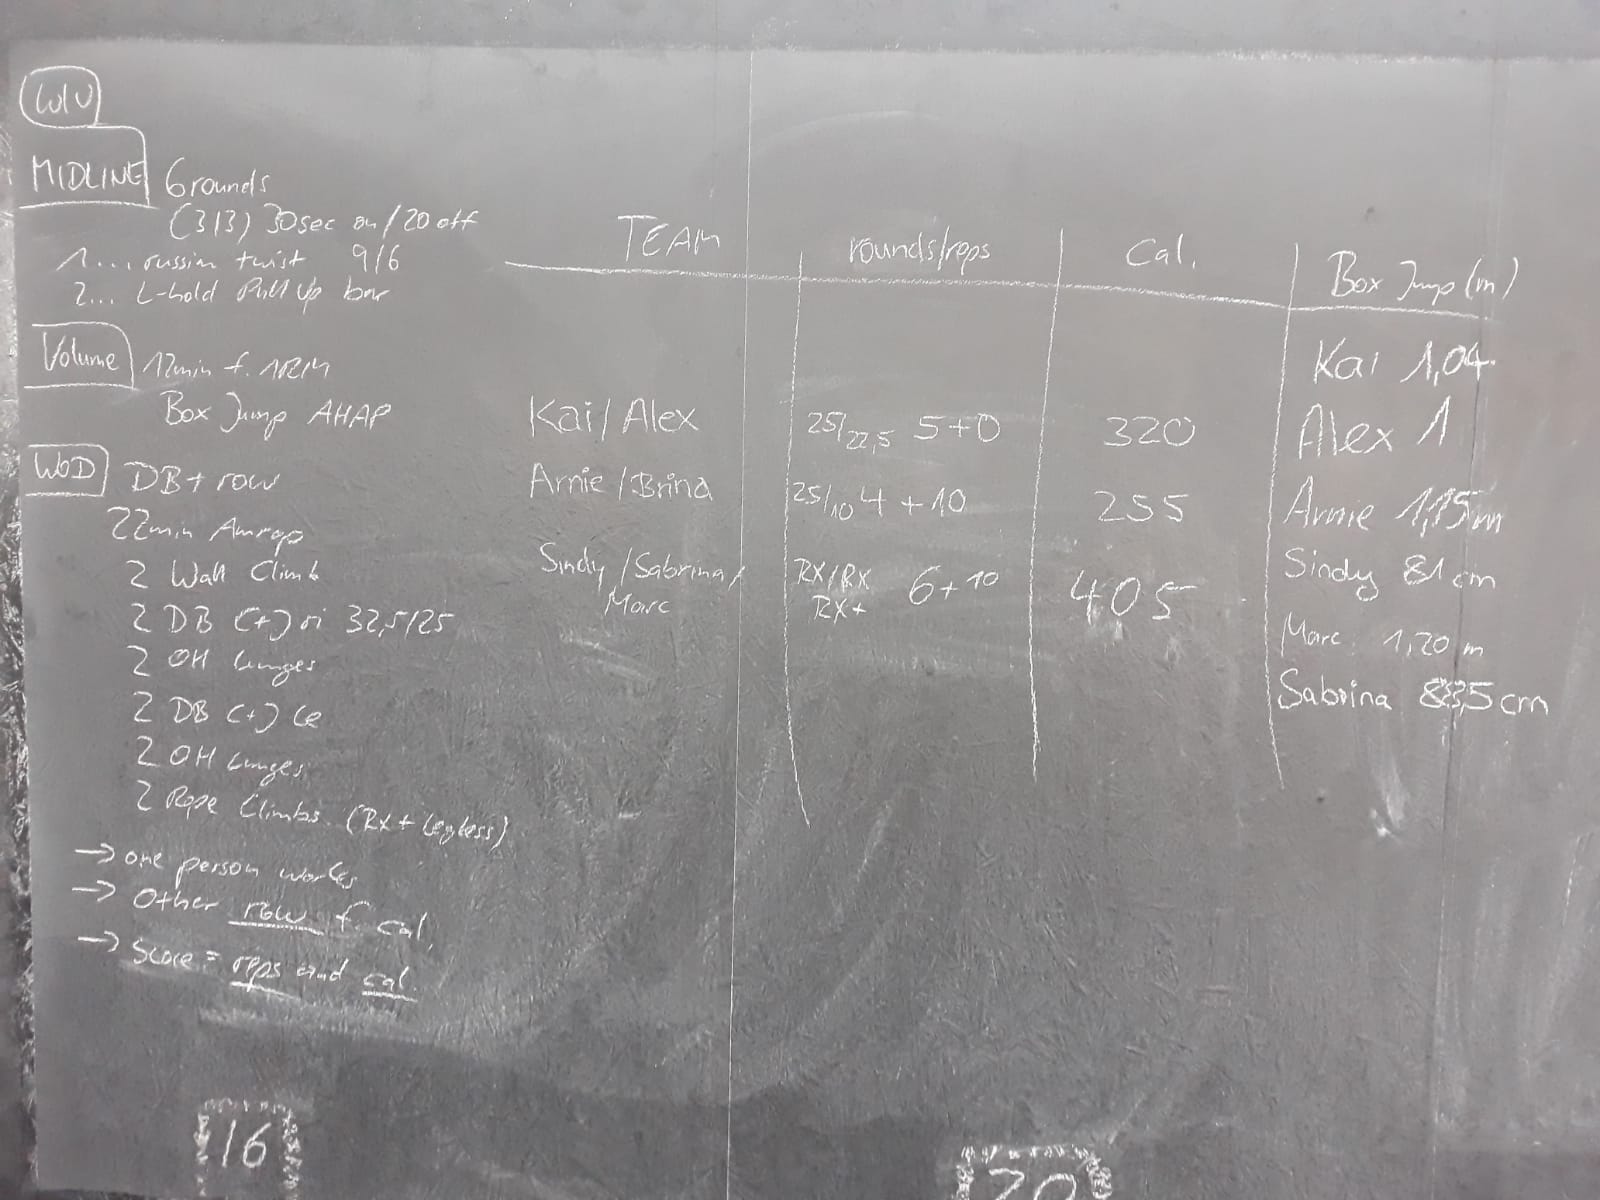 W/U
MIDLINE 6 rounds
(3/3) 30sec on/20 off
1... russian twist 9/6
2... L-hold Pull Up bar
Volume 12min f. 1RM
Box Jump AHAP
WOD DB + row
22min Amrap
2 Wall Climb
2 DB C+J ri 32,5/25
2 OH lunges
2 DB C+J le
2 OH lunges
2 Rope Climbs (Rx+ legless)
→ one person works
→ Other row f. cal.
→ Score = reps and cal.
TEAM rounds/reps Cal. Box Jump (m)
Kai 1,04
Kai/Alex 25/22,5 5+0 320 Alex 1
Arnie/Brina 25/10 4+10 255 Arnie 1,15m
Sindy/Sabrina/ RX/RX 6+10 405 Sindy 81 cm
Marc RX+
Marc 1,20 m
Sabrina cm
16
20